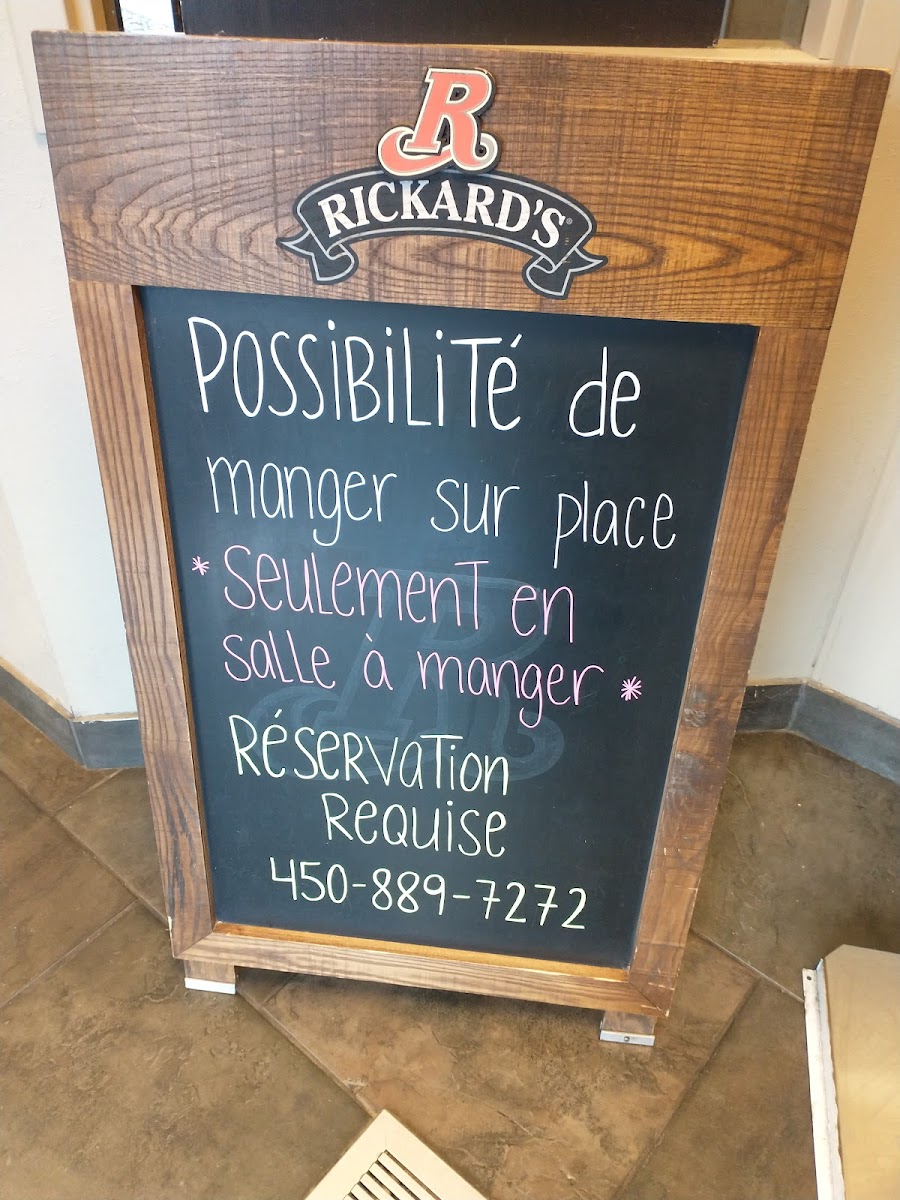 R
RICKARD'S
POSSIBILITÉ de
manger sur place
* Seulement en
salle à manger *
Réservation
Requise
450-889-7272